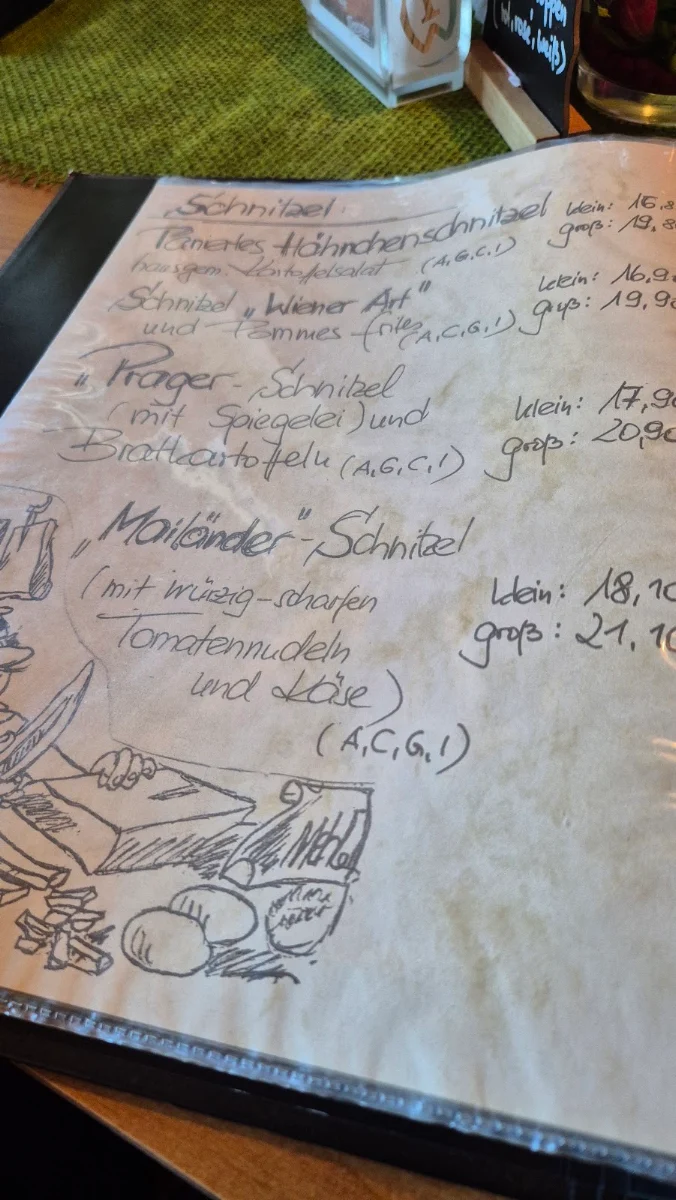 rot, rose, weiß)
Schnitzel
Paniertes Hähnchenschnitzel klein: 16,8
hausgem. Kartoffelsalat (A,G,C,I) groß: 19,8
Schnitzel „Wiener Art" klein: 16,90
und Pommes frites (A,C,G,I) groß: 19,90
„Prager-Schnitzel
(mit Spiegelei) und klein: 17,90
Bratkartoffeln (A,G,C,I) groß: 20,90
„Mailänder"-Schnitzel
(mit würzig-scharfen klein: 18,10
Tomatennudeln groß: 21,10
und Käse)
(A,C,G,I)
Mehl